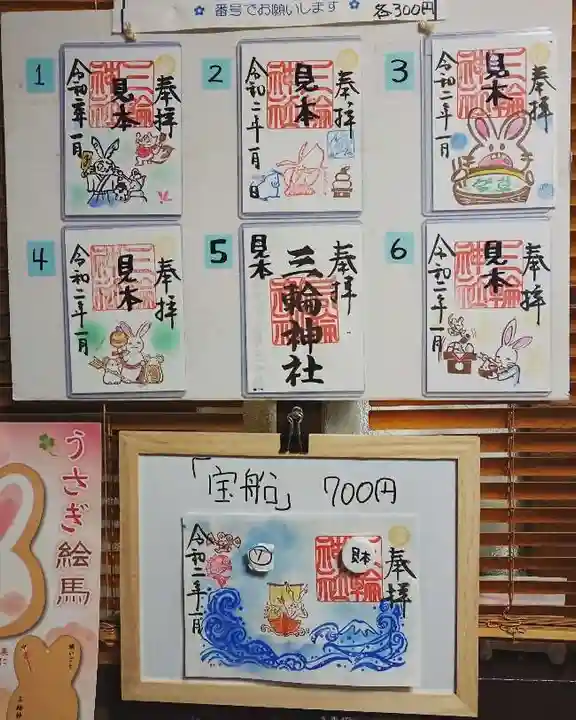 番号でお願いします 各300円
1
奉拝
見本
三輪神社
令和二年一月
2
奉拝
見本
三輪神社
令和二年一月
3
奉拝
見本
三輪神社
令和二年一月
4
奉拝
見本
三輪神社
令和二年一月
5
奉拝
三輪神社
見本
6
奉拝
見本
三輪神社
令和二年一月
うさぎ絵馬
「宝船」 700円
奉拝
三輪神社
令和二年一月